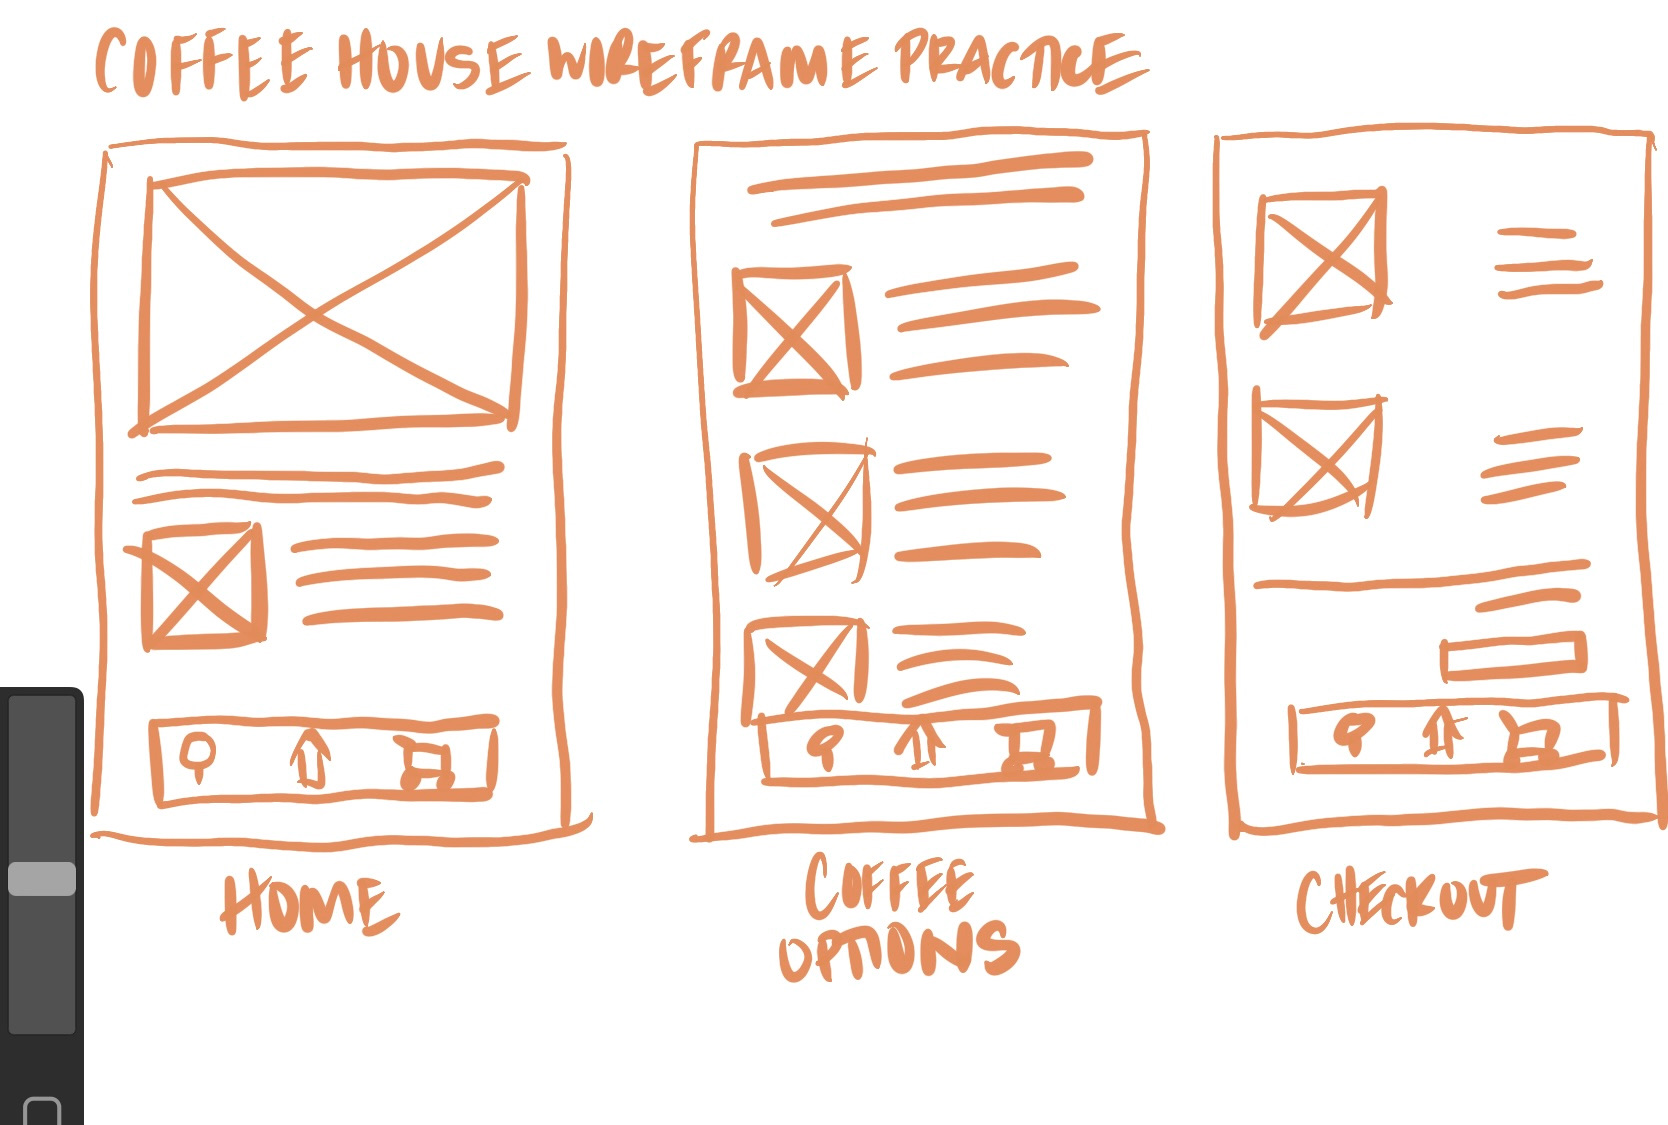 COFFEE HOUSE WIREFRAME PRACTICE
HOME
COFFEE
OPTIONS
CHECKOUT